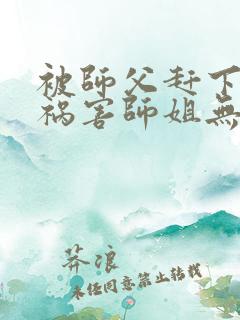 被師父赶下
祸害師姐無
莽浪
未任同意禁止转载